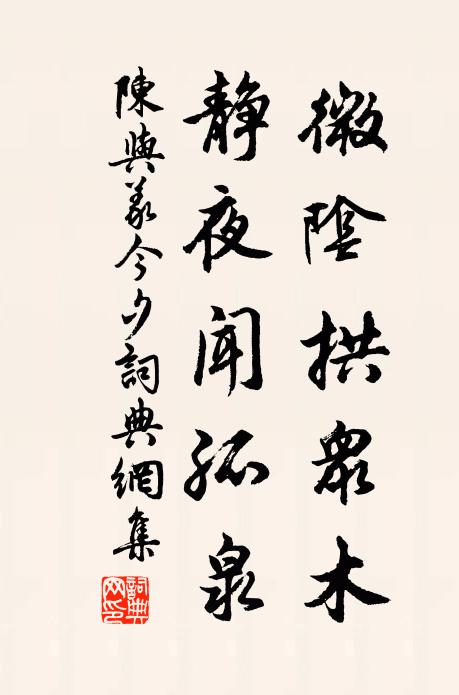 微陰拱衆木
靜夜聞孤泉
陳與義今夕詞典網集
詞典網印